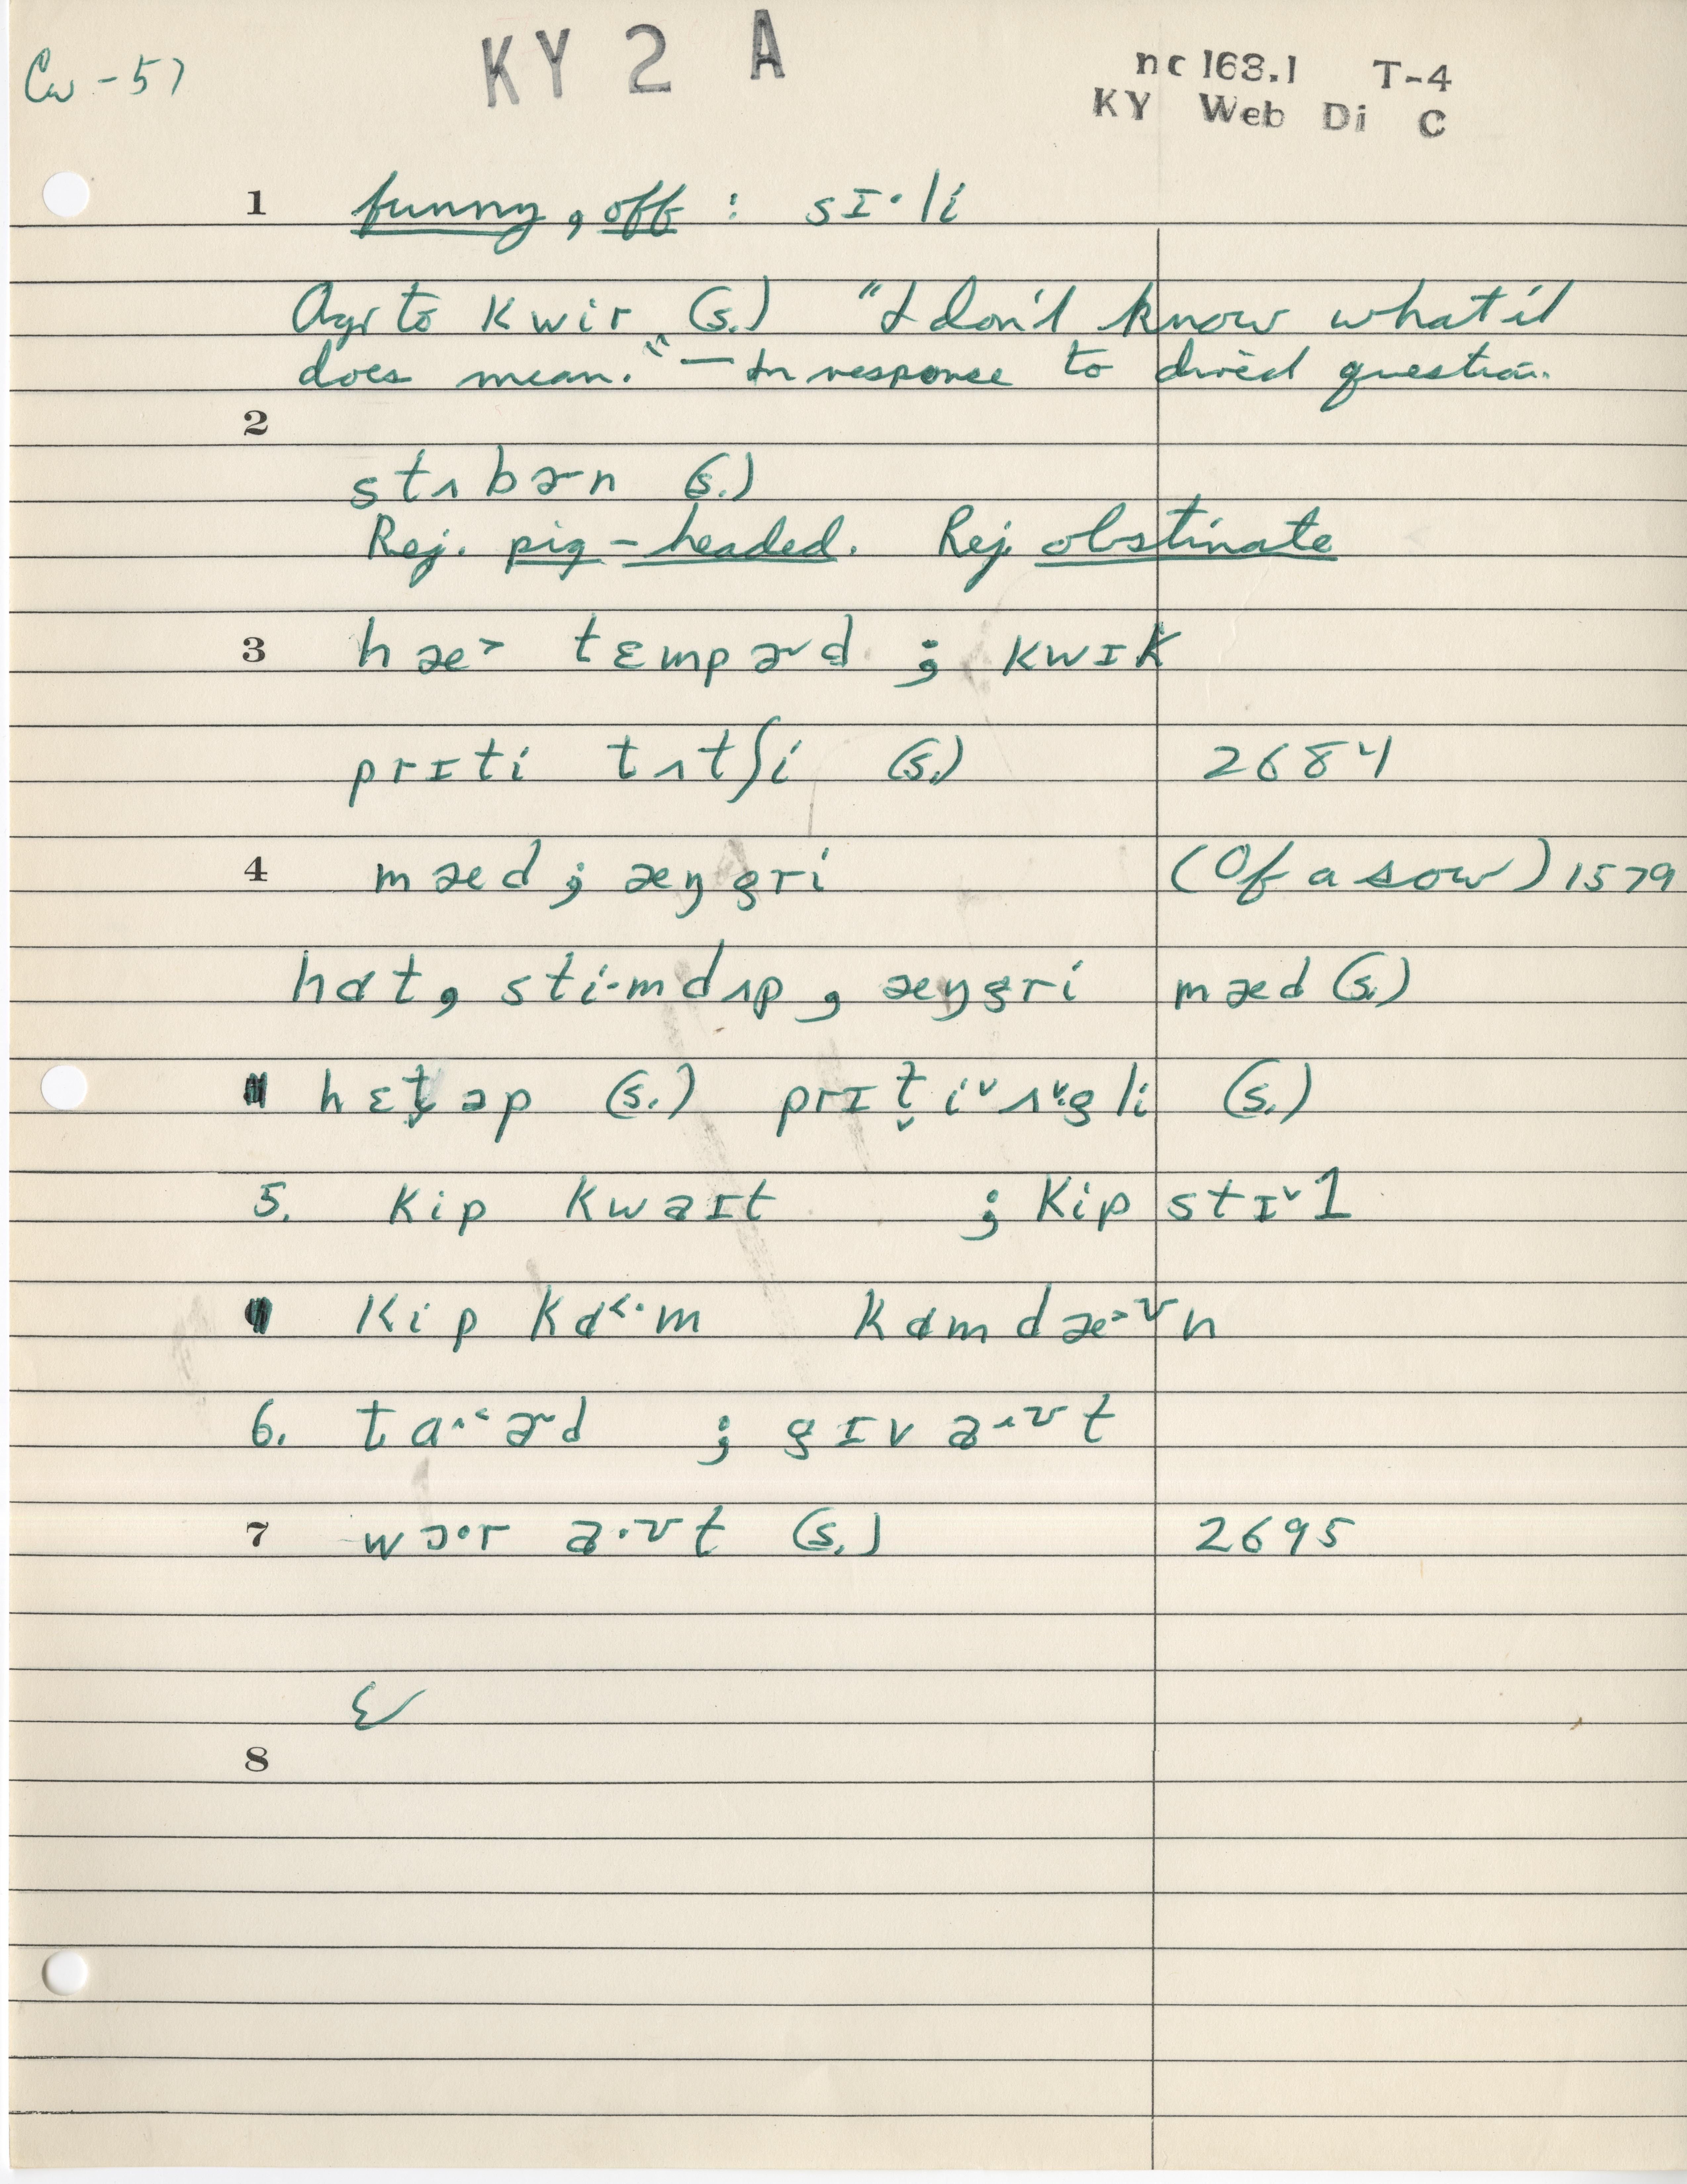 Cw-57
KY 2 A
nc 163.1 T-4
KY Web Di C
1 funny, off : sɪ·li
Agr to kwir (s.) "I don't know what it
does mean." — In response to direct question.
2
stʌbɚn (s.)
Rej. pig-headed. Rej. obstinate
3 hæ˃ tɛmpɚd ; kwɪk
prɪti tʌtʃi (s.) 2684
4 mæd ; æŋgri (Of a sow) 1579
hɑt, sti·mdʌp, æŋgri mæd (s.)
hɛt̬əp (s.) prɪt̬i˅ʌ˅gli (s.)
5. kip kwaɪt ; kip stɪ˅l
kip kɑ˂·m kɑmdæ˃ʊn
6. taɚd ; gɪv aʊt
7 wɔ·r a·ʊt (s.) 2695
8